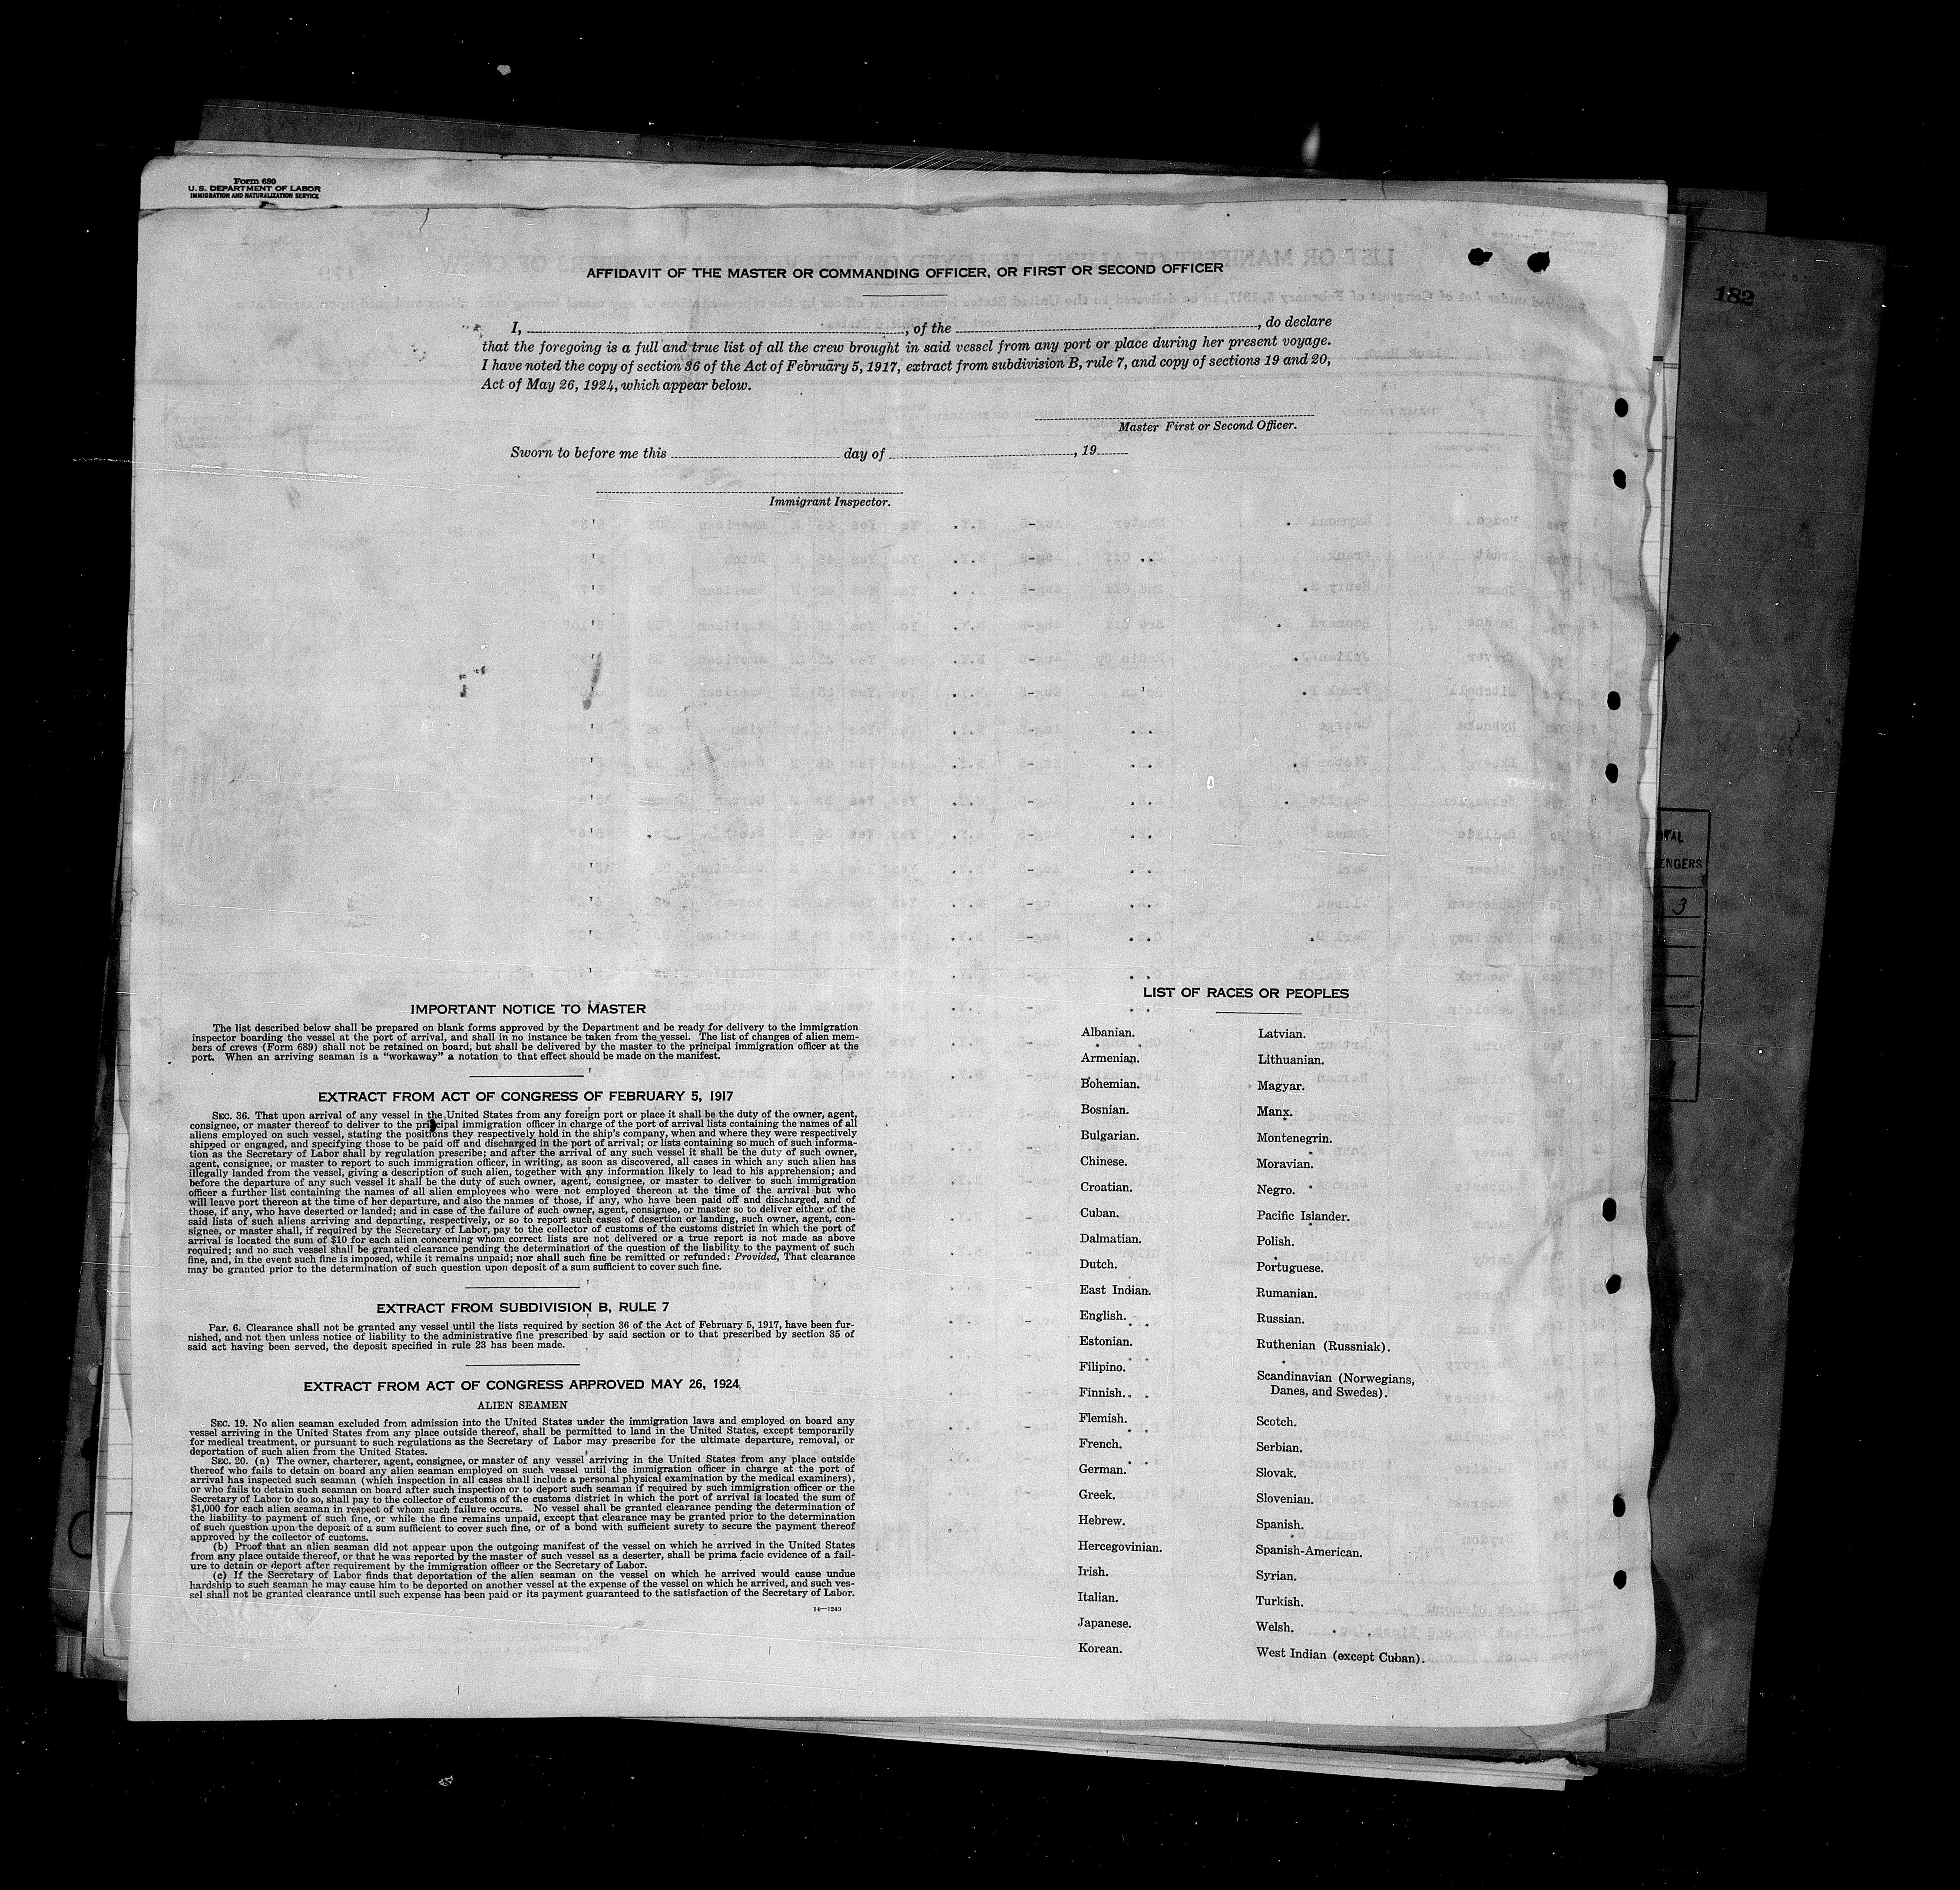 Form 680
U. S. DEPARTMENT OF LABOR
IMMIGRATION AND NATURALIZATION SERVICE
182
AFFIDAVIT OF THE MASTER OR COMMANDING OFFICER, OR FIRST OR SECOND OFFICER
I, , of the , do declare
that the foregoing is a full and true list of all the crew brought in said vessel from any port or place during her present voyage.
I have noted the copy of section 36 of the Act of February 5, 1917, extract from subdivision B, rule 7, and copy of sections 19 and 20,
Act of May 26, 1924, which appear below.
Master First or Second Officer.
Sworn to before me this day of , 19
Immigrant Inspector.
IMPORTANT NOTICE TO MASTER
The list described below shall be prepared on blank forms approved by the Department and be ready for delivery to the immigration
inspector boarding the vessel at the port of arrival, and shall in no instance be taken from the vessel. The list of changes of alien mem-
bers of crews (Form 689) shall not be retained on board, but shall be delivered by the master to the principal immigration officer at the
port. When an arriving seaman is a "workaway" a notation to that effect should be made on the manifest.
EXTRACT FROM ACT OF CONGRESS OF FEBRUARY 5, 1917
SEC. 36. That upon arrival of any vessel in the United States from any foreign port or place it shall be the duty of the owner, agent,
consignee, or master thereof to deliver to the principal immigration officer in charge of the port of arrival lists containing the names of all
aliens employed on such vessel, stating the positions they respectively hold in the ship's company, when and where they were respectively
shipped or engaged, and specifying those to be paid off and discharged in the port of arrival; or lists containing so much of such informa-
tion as the Secretary of Labor shall by regulation prescribe; and after the arrival of any such vessel it shall be the duty of such owner,
agent, consignee, or master to report to such immigration officer, in writing, as soon as discovered, all cases in which any such alien has
illegally landed from the vessel, giving a description of such alien, together with any information likely to lead to his apprehension; and
before the departure of any such vessel it shall be the duty of such owner, agent, consignee, or master to deliver to such immigration
officer a further list containing the names of all alien employees who were not employed thereon at the time of the arrival but who
will leave port thereon at the time of her departure, and also the names of those, if any, who have been paid off and discharged, and of
those, if any, who have deserted or landed; and in case of the failure of such owner, agent, consignee, or master so to deliver either of the
said lists of such aliens arriving and departing, respectively, or so to report such cases of desertion or landing, such owner, agent, con-
signee, or master shall, if required by the Secretary of Labor, pay to the collector of customs of the customs district in which the port of
arrival is located the sum of $10 for each alien concerning whom correct lists are not delivered or a true report is not made as above
required; and no such vessel shall be granted clearance pending the determination of the question of the liability to the payment of such
fine, and, in the event such fine is imposed, while it remains unpaid; nor shall such fine be remitted or refunded: Provided, That clearance
may be granted prior to the determination of such question upon deposit of a sum sufficient to cover such fine.
EXTRACT FROM SUBDIVISION B, RULE 7
Par. 6. Clearance shall not be granted any vessel until the lists required by section 36 of the Act of February 5, 1917, have been fur-
nished, and not then unless notice of liability to the administrative fine prescribed by said section or to that prescribed by section 35 of
said act having been served, the deposit specified in rule 23 has been made.
EXTRACT FROM ACT OF CONGRESS APPROVED MAY 26, 1924
ALIEN SEAMEN
SEC. 19. No alien seaman excluded from admission into the United States under the immigration laws and employed on board any
vessel arriving in the United States from any place outside thereof, shall be permitted to land in the United States, except temporarily
for medical treatment, or pursuant to such regulations as the Secretary of Labor may prescribe for the ultimate departure, removal, or
deportation of such alien from the United States.
SEC. 20. (a) The owner, charterer, agent, consignee, or master of any vessel arriving in the United States from any place outside
thereof who fails to detain on board any alien seaman employed on such vessel until the immigration officer in charge at the port of
arrival has inspected such seaman (which inspection in all cases shall include a personal physical examination by the medical examiners),
or who fails to detain such seaman on board after such inspection or to deport such seaman if required by such immigration officer or the
Secretary of Labor to do so, shall pay to the collector of customs of the customs district in which the port of arrival is located the sum of
$1,000 for each alien seaman in respect of whom such failure occurs. No vessel shall be granted clearance pending the determination of
the liability to payment of such fine, or while the fine remains unpaid, except that clearance may be granted prior to the determination
of such question upon the deposit of a sum sufficient to cover such fine, or of a bond with sufficient surety to secure the payment thereof
approved by the collector of customs.
(b) Proof that an alien seaman did not appear upon the outgoing manifest of the vessel on which he arrived in the United States
from any place outside thereof, or that he was reported by the master of such vessel as a deserter, shall be prima facie evidence of a fail-
ure to detain or deport after requirement by the immigration officer or the Secretary of Labor.
(c) If the Secretary of Labor finds that deportation of the alien seaman on the vessel on which he arrived would cause undue
hardship to such seaman he may cause him to be deported on another vessel at the expense of the vessel on which he arrived, and such ves-
sel shall not be granted clearance until such expense has been paid or its payment guaranteed to the satisfaction of the Secretary of Labor.
14—1240
LIST OF RACES OR PEOPLES
Albanian.
Armenian.
Bohemian.
Bosnian.
Bulgarian.
Chinese.
Croatian.
Cuban.
Dalmatian.
Dutch.
East Indian.
English.
Estonian.
Filipino.
Finnish.
Flemish.
French.
German.
Greek.
Hebrew.
Hercegovinian.
Irish.
Italian.
Japanese.
Korean.
Latvian.
Lithuanian.
Magyar.
Manx.
Montenegrin.
Moravian.
Negro.
Pacific Islander.
Polish.
Portuguese.
Rumanian.
Russian.
Ruthenian (Russniak).
Scandinavian (Norwegians,
Danes, and Swedes).
Scotch.
Serbian.
Slovak.
Slovenian.
Spanish.
Spanish-American.
Syrian.
Turkish.
Welsh.
West Indian (except Cuban).
ENGERS
3